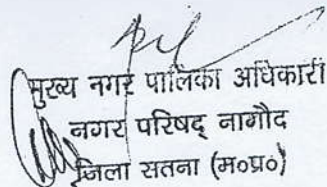 मुख्य नगर पालिका अधिकारी
नगर परिषद् नागौद
जिला सतना (म०प्र०)